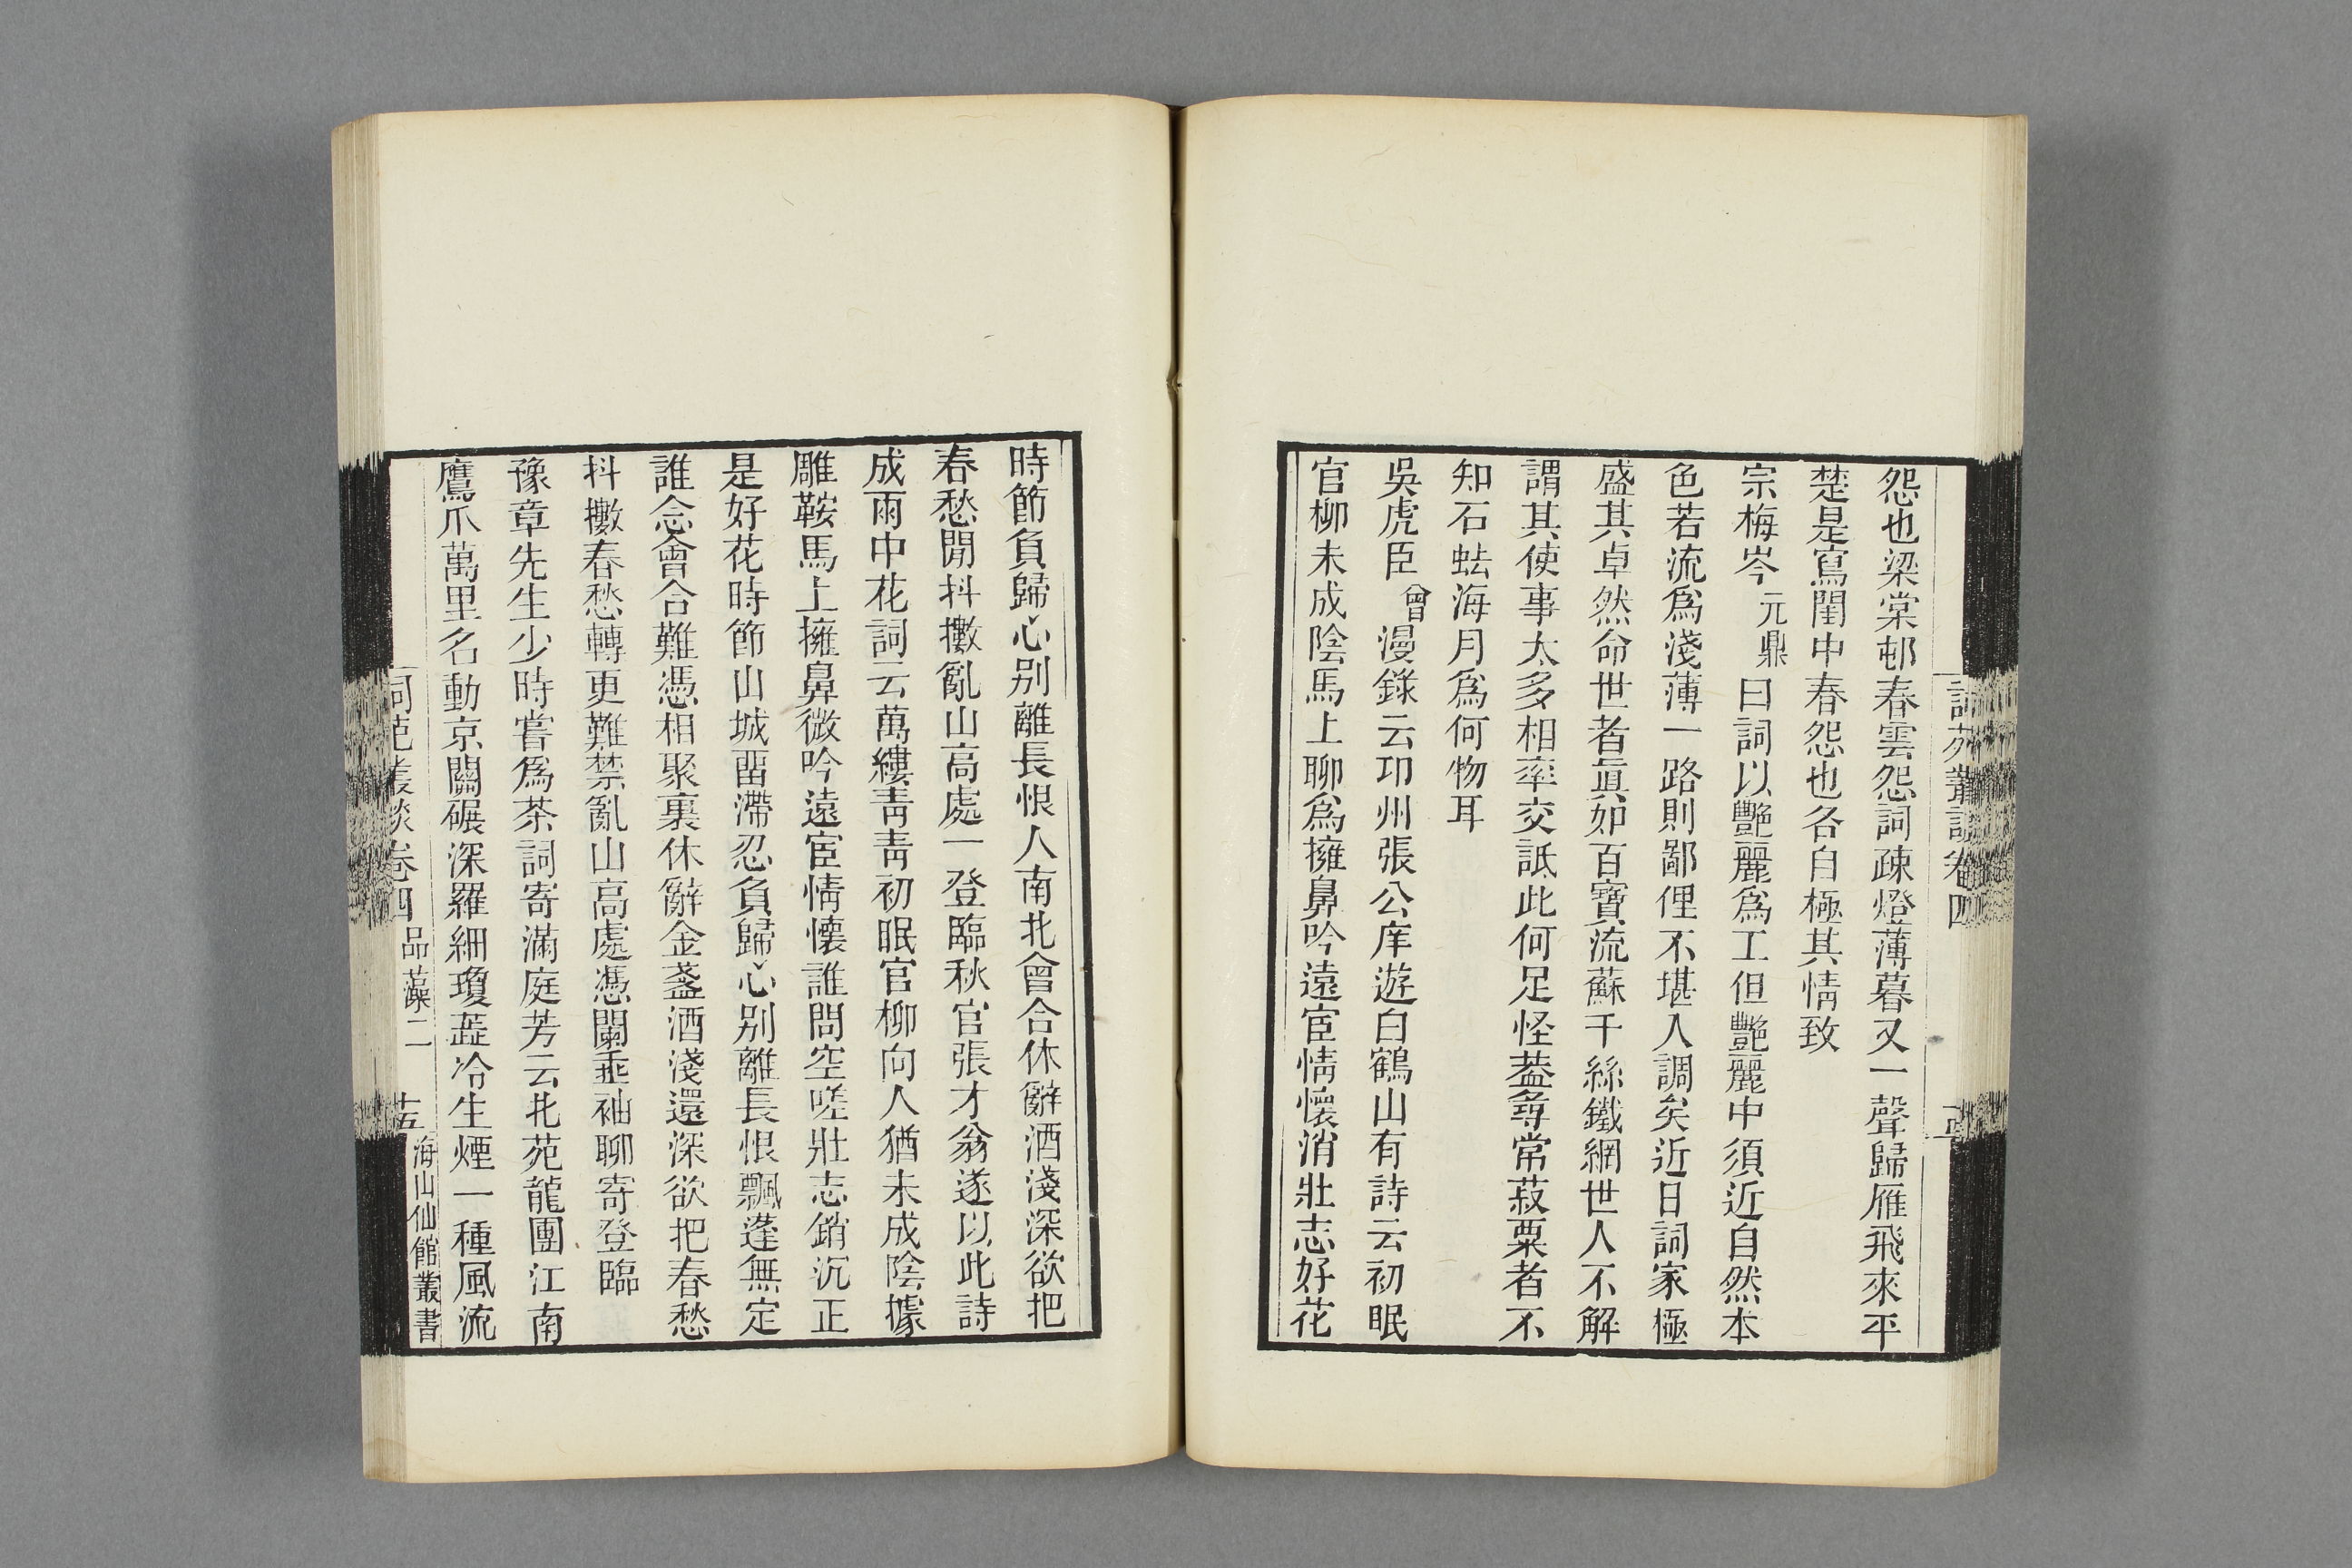 怨也梁棠邨春雲怨詞疎燈薄暮又一聲歸雁飛來平
楚是寫閨中春怨也各自極其情致
宗梅岑元鼎曰詞以豔麗爲工但豔麗中須近自然本
色若流爲淺薄一路則鄙俚不堪入調矣近日詞家極
盛其卓然命世者眞如百寶流蘇千絲鐵網世人不解
謂其使事太多相率交詆此何足怪葢尋常菽粟者不
知石蛣海月爲何物耳
吳虎臣曾漫錄云卭州張公庠遊白鶴山有詩云初眠
官柳未成陰馬上聊爲擁鼻吟遠宦情懷消壯志好花
時節負歸心別離長恨人南北會合休辭酒淺深欲把
春愁閒抖擻亂山高處一登臨秋官張才翁遂以此詩
成雨中花詞云萬縷靑靑初眠官柳向人猶未成陰據
雕鞍馬上擁鼻微吟遠宦情懷誰問空嗟壯志銷沉正
是好花時節山城畱滯忍負歸心別離長恨飄蓬無定
誰念會合難憑相聚裏休辭金盞酒淺還深欲把春愁
抖擻春愁轉更難禁亂山高處憑闌垂袖聊寄登臨
豫章先生少時嘗爲茶詞寄滿庭芳云北苑龍團江南
鷹爪萬里名動京關碾深羅細瓊蘂冷生煙一種風流
詞苑叢談卷四 品藻二 十五 海山仙館叢書